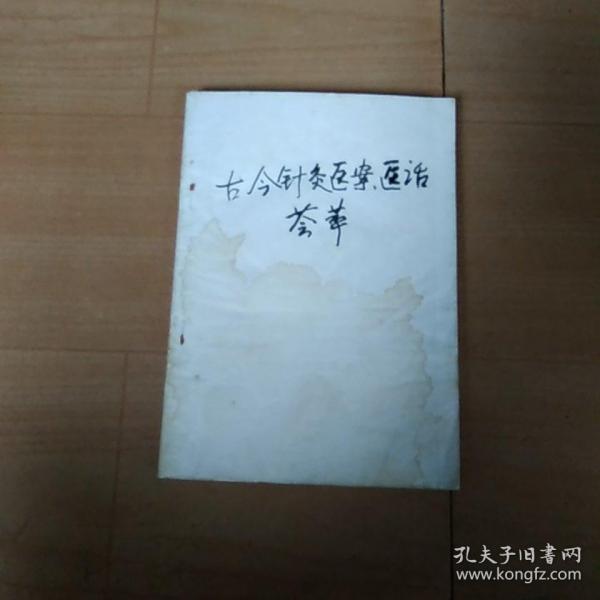 古今针灸医案、医话
荟萃
孔夫子旧书网
www.kongfz.com